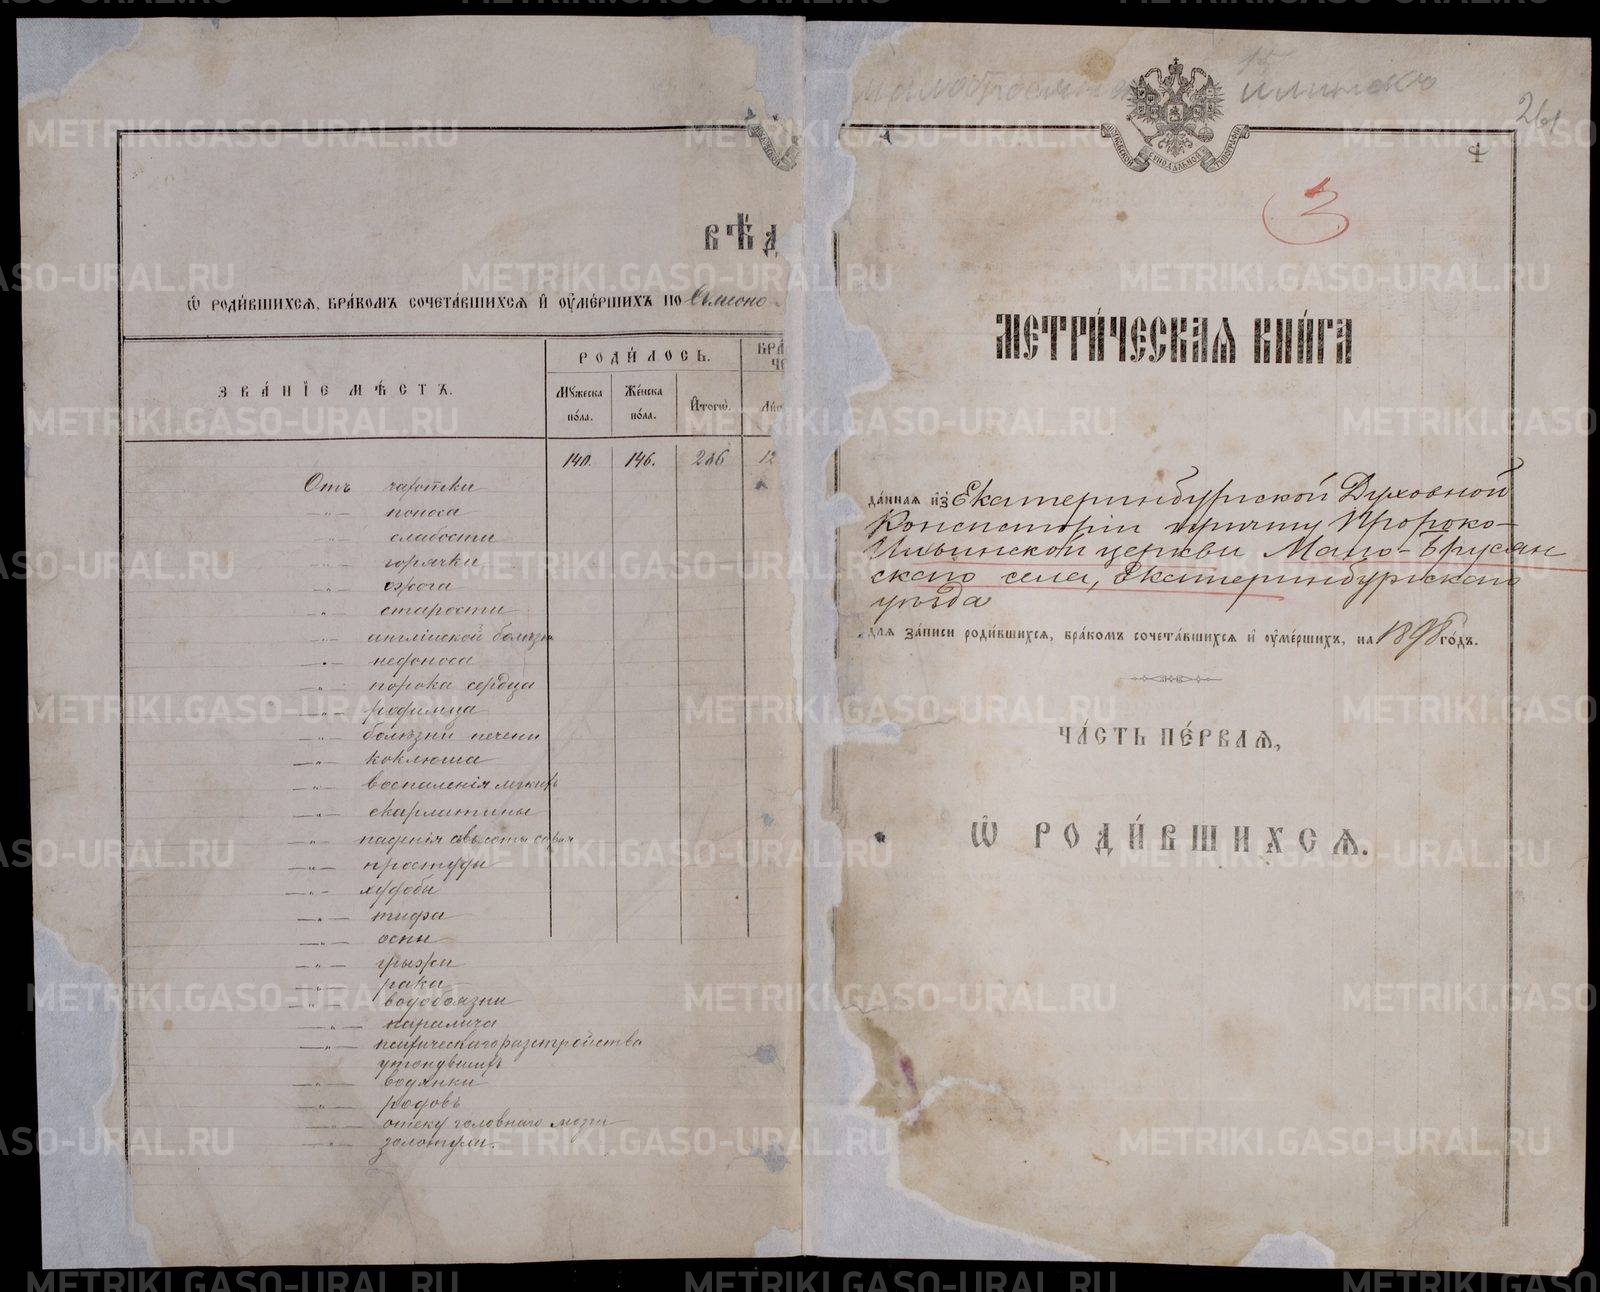 ВѢД
Ѡ РОДИ́ВШИХСЯ, БРА́КОМЪ СОЧЕТА́ВШИХСЯ И҆ ОУ҆МЕ́РШИХЪ ПО
ЗВА́НІЕ МѢСТЪ.
РОДИ́ЛОСЬ.
БРА
ЧЕ
Му́жеска по́ла.
Же́нска по́ла.
И҆тогѡ̀.
140. 146. 286 12
Отъ чахотки
поноса
слабости
горячки
ожога
старости
англійской болѣзни
недоноса
порока сердца
родимца
болѣзни печени
коклюша
воспаленія легкихъ
скарлатины
паденія съ высоты
простуды
худобы
тифа
оспы
грыжи
рака
водобоязни
паралича
психическаго разстройства
утонувшихъ
водянки
родовъ
отеку головнаго мозга
золотухи.
261
3
МОСКОВСКОЙ СѴНОДАЛЬНОЙ ТИПОГРАФІИ
МЕТРИ́ЧЕСКАЯ КНИ́ГА
да́нная и҆з Екатеринбургской Духовной
Консисторіи причту Пророко-
Ильинской церкви Мало-Брусян
скаго села, Екатеринбургскаго
уѣзда
для за́писи роди́вшихся, бра́комъ сочета́вшихся и҆ оу҆ме́ршихъ, на 1898 го́дъ.
ЧА́СТЬ ПЕ́РВАЯ,
Ѡ҆ РОДИ́ВШИХСЯ.
METRIKI.GASO-URAL.RU